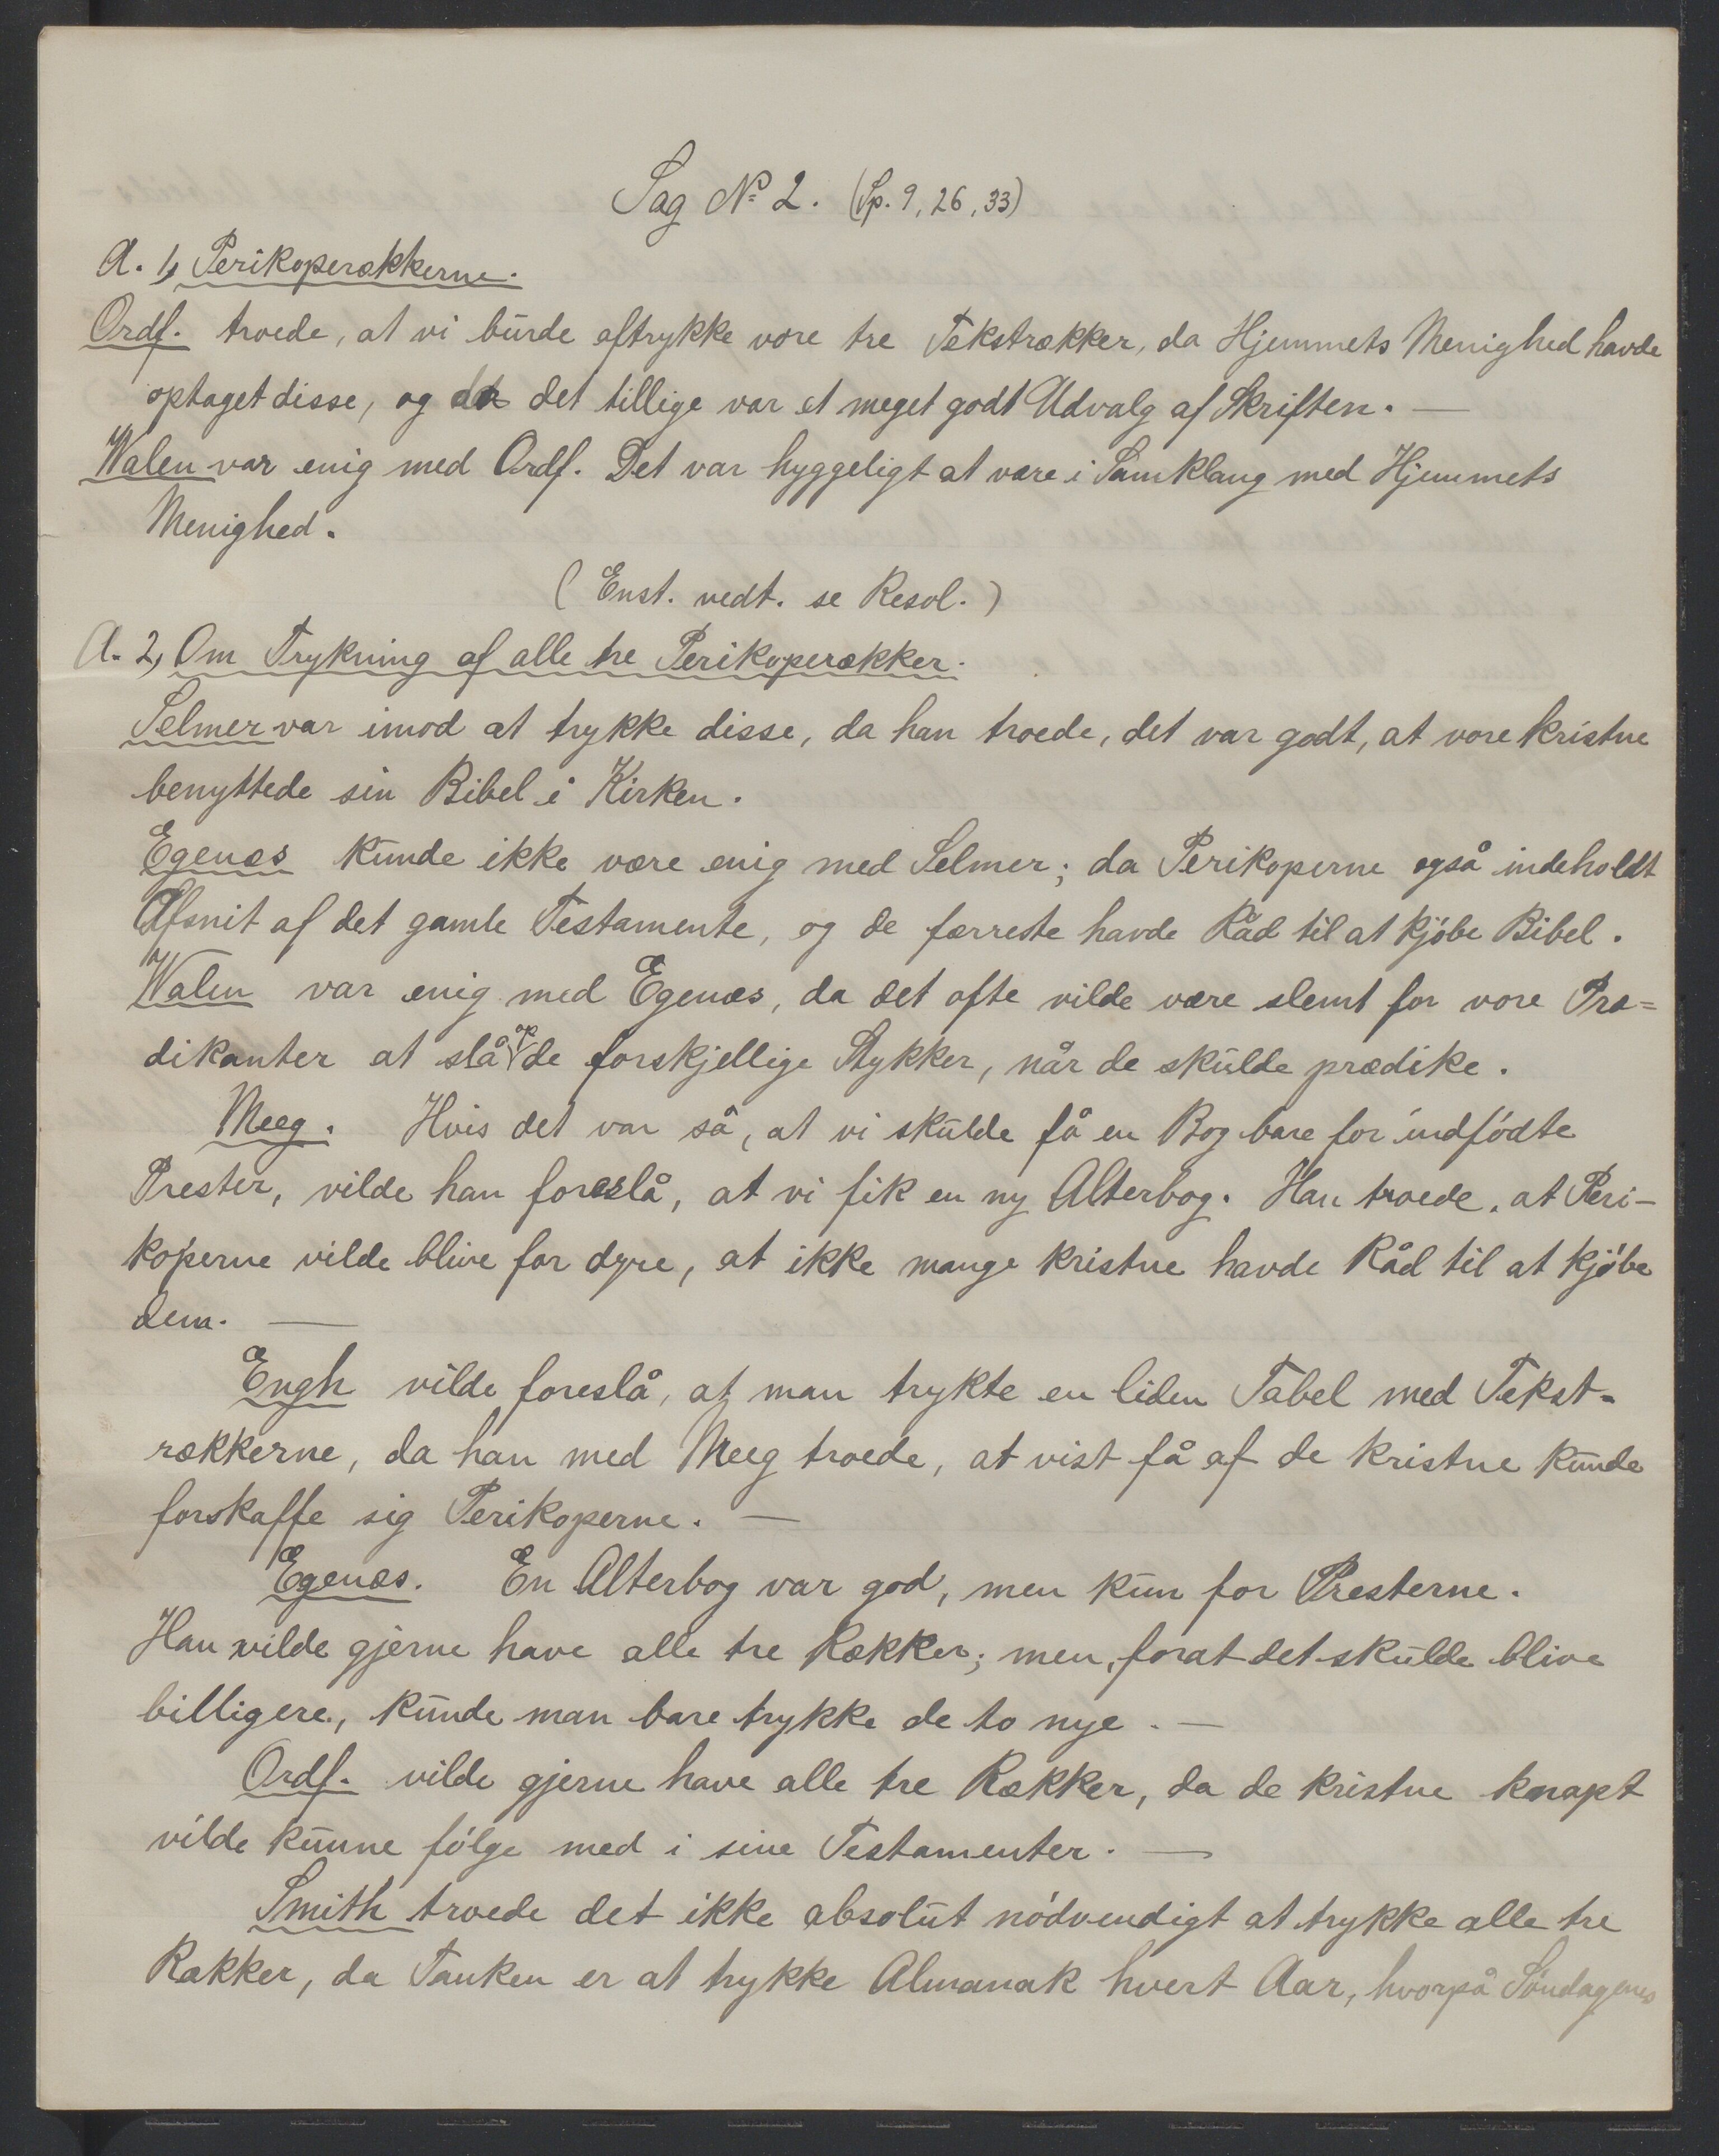 Sag № 2. (Sp. 9, 26, 33)
A. 1, Perikoperækkerne.
Ordf. troede, at vi burde aftrykke vore tre Tekstrækker, da Hjemmets Menighed havde
optaget disse, og det tillige var et meget godt Udvalg af Skriften. —
Walen var enig med Ordf. Det var hyggeligt at være i Samklang med Hjemmets
Menighed.
(Enst. vedt. se Resol.)
A. 2, Om Trykning af alle tre Perikoperækker.
Selmer var imod at trykke disse, da han troede, det var godt, at vore kristne
benyttede sin Bibel i Kirken.
Egenæs kunde ikke være enig med Selmer; da Perikoperne også indeholdt
Afsnit af det gamle Testamente, og de færreste havde Råd til at kjöbe Bibel.
Walen var enig med Egenæs, da det ofte vilde være slemt for vore Præ=
dikanter at slå op de forskjellige Stykker, når de skulde prædike.
Meeg. Hvis det var så, at vi skulde få en Bog bare for indfödte
Prester, vilde han foreslå, at vi fik en ny Alterbog. Han troede, at Peri-
koperne vilde blive for dyre, at ikke mange kristne havde Råd til at kjöbe
dem. —
Engh vilde foreslå, at man trykte en liden Tabel med Tekst-
rækkerne, da han med Meeg troede, at vist få af de kristne kunde
forskaffe sig Perikoperne. —
Egenæs. En Alterbog var god, men kun for Presterne.
Han vilde gjerne have alle tre Rækker; men, forat det skulde blive
billigere, kunde man bare trykke de to nye. —
Ordf. vilde gjerne have alle tre Rækker, da de kristne knapt
vilde kunne fölge med i sine Testamenter. —
Smith troede det ikke absolut nödvendigt at trykke alle tre
Rækker, da Tanken er at trykke Almanak hvert Aar, hvorpå Söndagens